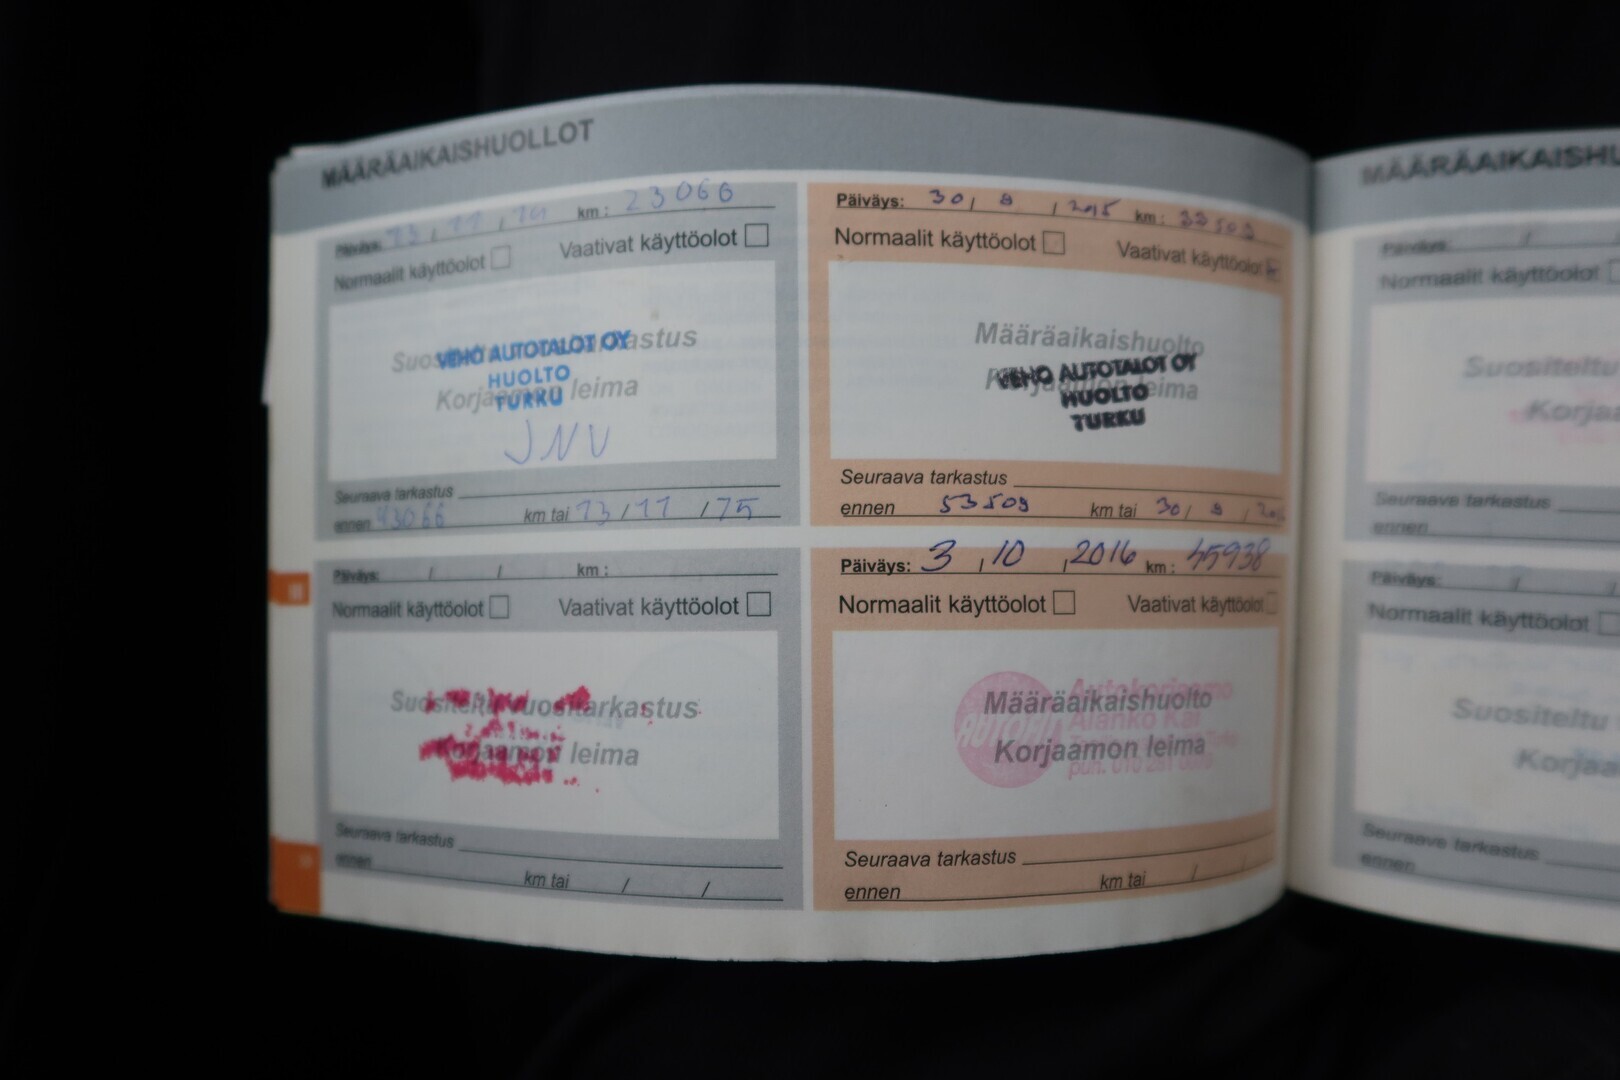 MÄÄRÄAIKAISHUOLLOT
Päiväys: 13 / 11 / 14 km : 23066
Normaalit käyttöolot Vaativat käyttöolot
Suositeltu vuositarkastus
Korjaamon leima
VEHO AUTOTALOT OY
HUOLTO
TURKU
JNV
Seuraava tarkastus
ennen 43066 km tai 13 / 11 / 15
Päiväys: 30 / 9 / 2015 km : 33509
Normaalit käyttöolot Vaativat käyttöolot
Määräaikaishuolto
Korjaamon leima
VEHO AUTOTALOT OY
HUOLTO
TURKU
Seuraava tarkastus
ennen 53509 km tai 30 / 9 /
Päiväys: / / km :
Normaalit käyttöolot Vaativat käyttöolot
Suositeltu vuositarkastus
Korjaamon leima
Seuraava tarkastus
ennen km tai / /
Päiväys: 3 / 10 / 2016 km : 45938
Normaalit käyttöolot Vaativat käyttöolot
Määräaikaishuolto
Korjaamon leima
AUTOFIT
Autokorjaamo
Alanko Kai
puh. 010
Seuraava tarkastus
ennen km tai / /
MÄÄRÄAIKAISHU
Päiväys: /
Normaalit käyttöolot
Suositeltu
Korjaa
Seuraava tarkastus
ennen
Päiväys: / /
Normaalit käyttöolot
Suositeltu
Korjaa
Seuraava tarkastus
ennen